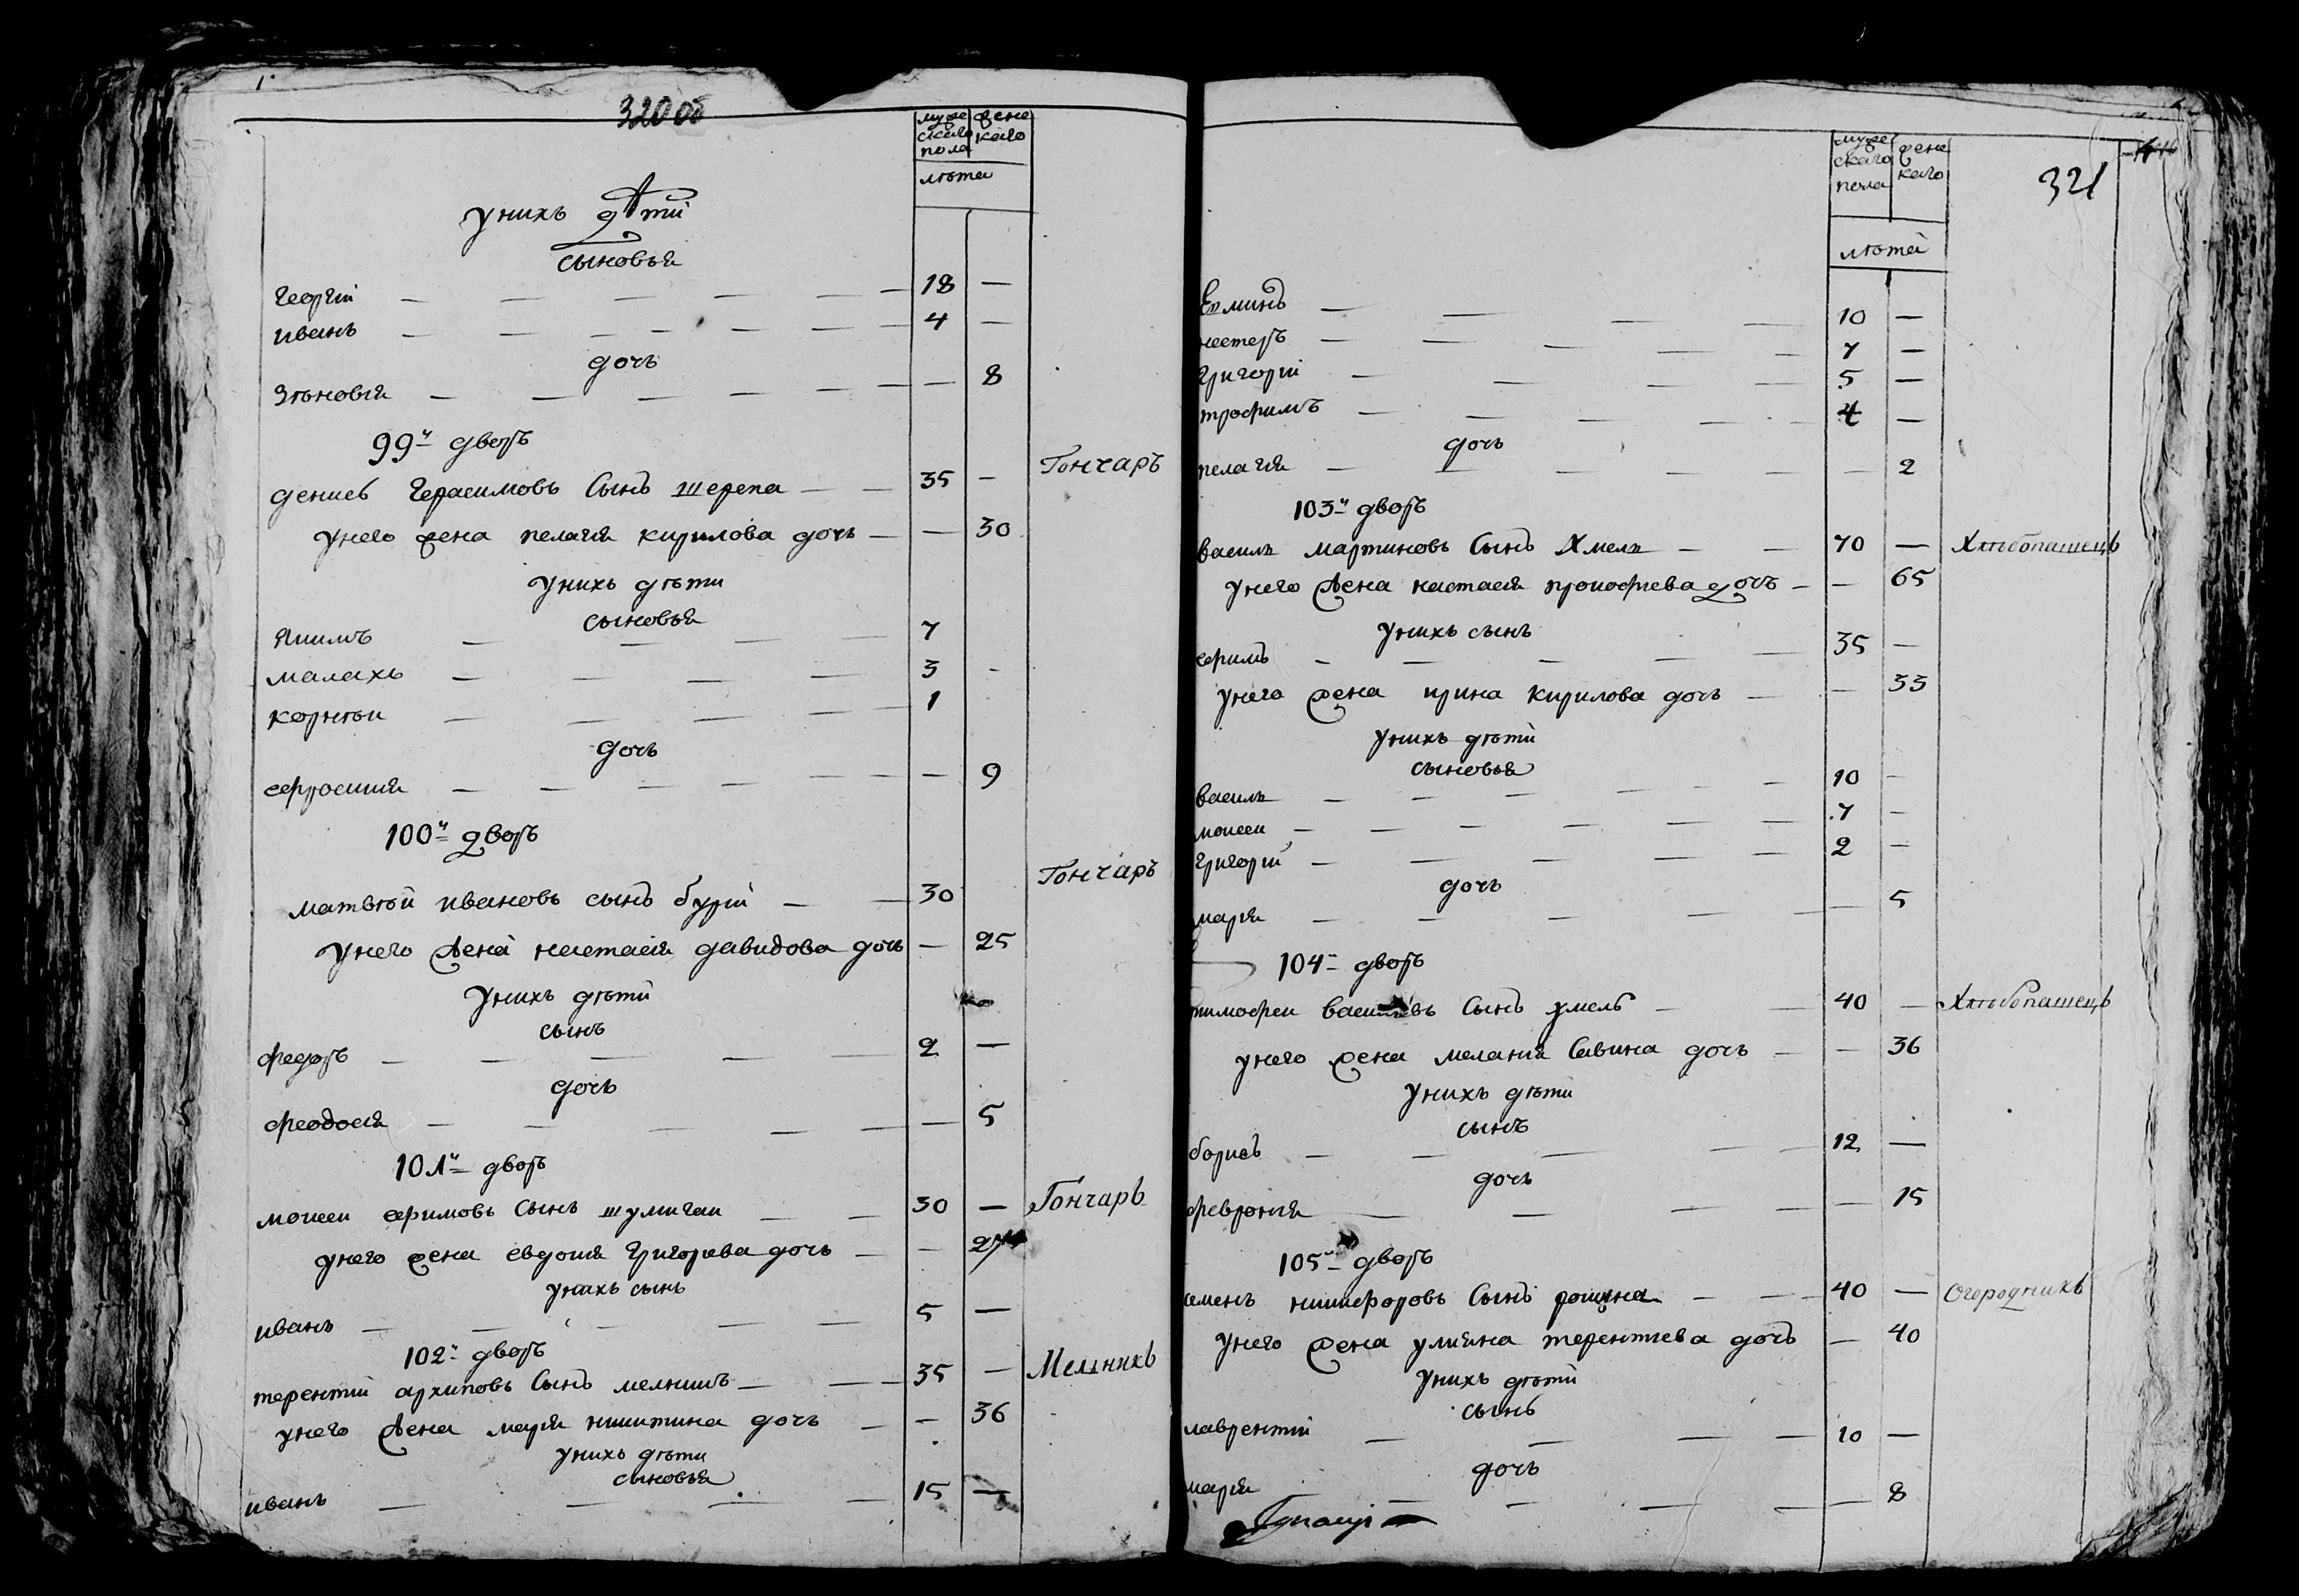 320 об
муже
скаго
пола
жене
каго
лѣта
у нихъ дѣти
сыновья
георгій — 18 —
иванъ — 4 —
дочь
зѣновія — — 8
99й дворъ
денисъ герасимовъ сынъ шерепа — 35 — Гончаръ
у него жена пелагія кирилова дочь — — 30
у нихъ дѣти
сыновья
якимъ — 7
малахъ — 3 -
корнѣи — 1
дочь
ефросинія — — 9
100й дворъ
матвѣй ивановъ сынъ бурій — 30 Гончаръ
у него жена настасія давидова дочь — 25
у нихъ дѣти
сынъ
федоръ — 2 —
дочь
феодосія — — 5
101й дворъ
моисеи ефимовъ сынъ шумигаи — 30 — Гончаръ
у него жена евдокия григорева дочь — — 27
у нихъ сынъ
иванъ — 5 —
102й дворъ
терентій архиповъ сынъ мелникъ — 35 — Мелникъ
у него жена марія никитина дочь — — 36
у нихъ дѣти
сыновья
иванъ — 15 —
муже
скаго
пола
жене
каго
321
лѣтъ
нестеръ — 7 —
григорій — 5 —
трофимъ — 4 —
дочь
пелагія — — 2
103й дворъ
василь мартиновъ сынъ хмель — 70 — Хлѣбопашецъ
у него жена настасія прокофиева дочь — — 65
у нихъ сынъ
ефимъ — 35 —
у него жена ирина кирилова дочь — — 33
у нихъ дѣти
сыновья
василь — 10 —
моисеи — 7 —
григорій — 2 —
дочь
марія — 5
104й дворъ
тимофеи василевъ сынъ хмель — 40 — Хлѣбопашецъ
у него жена меланія савина дочь — — 36
у нихъ дѣти
сынъ
борисъ — 12 —
дочь
февронія — — 15
105й дворъ
семенъ никифоровъ сынъ рощина — 40 — Огородникъ
у него жена улияна терентиева дочь — 40
у нихъ дѣти
сынъ
лаврентій — 10 —
дочь
марія — — 8